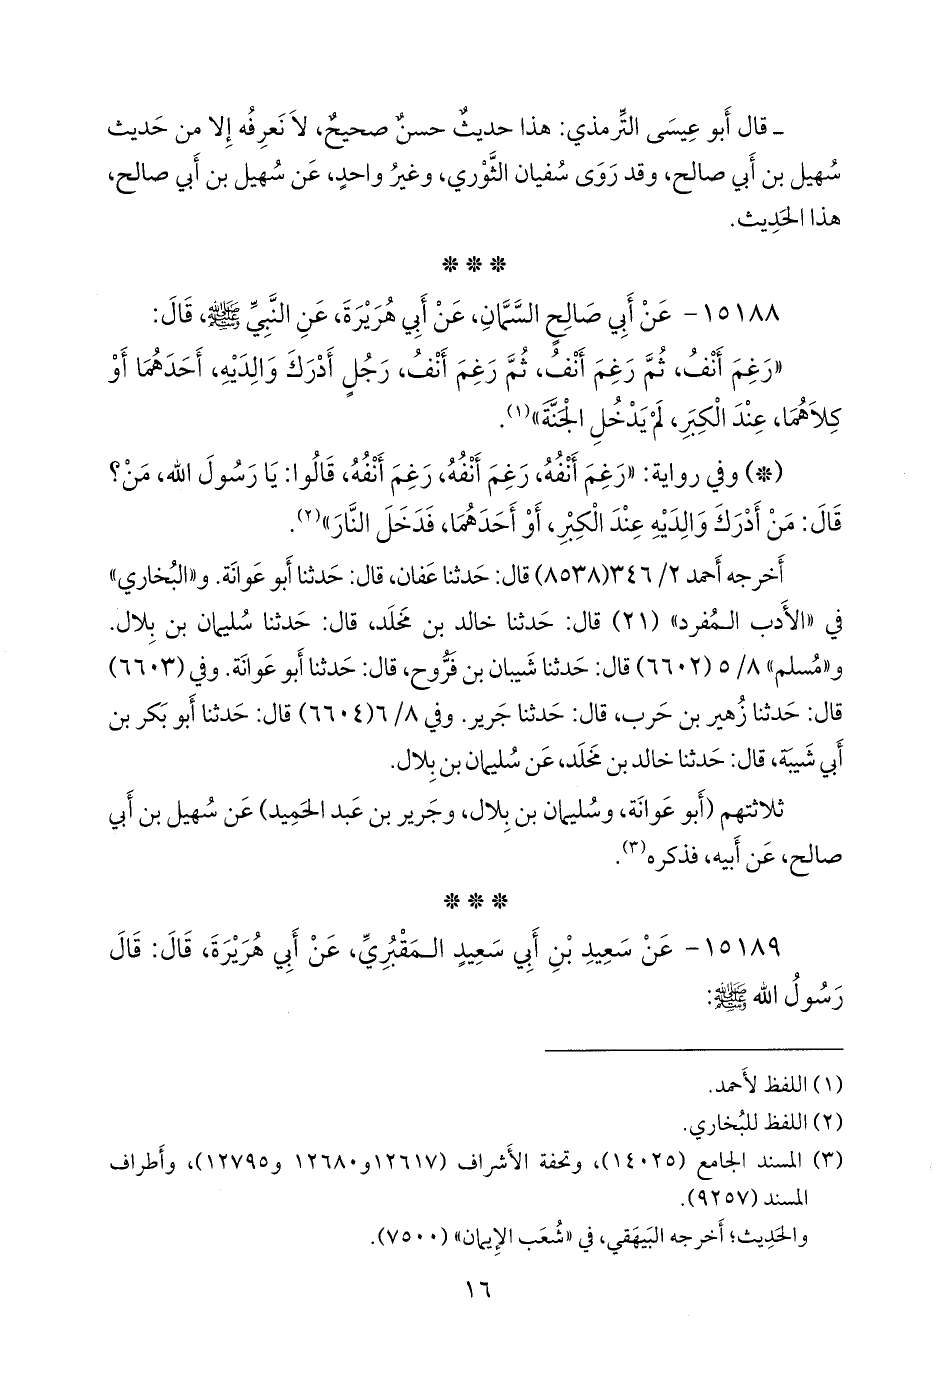 ـ قال أَبو عِيسَى التِّرمذي: هذا حديثٌ حسنٌ صحيحٌ، لاَ نَعرِفُه إِلا من حَديث
سُهيل بن أَبي صالح، وقد رَوَى سُفيان الثَّوْري، وغيرُ واحدٍ، عَن سُهيل بن أَبي صالح،
هذا الحَدِيث.
* * *
١٥١٨٨- عَنْ أَبِي صَالِحٍ السَّمَّانِ، عَنْ أَبِي هُرَيْرَةَ، عَنِ النَّبِيِّ ﷺ، قَالَ:
«رَغِمَ أَنْفُ، ثُمَّ رَغِمَ أَنْفُ، ثُمَّ رَغِمَ أَنْفُ، رَجُلٍ أَدْرَكَ وَالِدَيْهِ، أَحَدَهُمَا أَوْ
كِلاَهُمَا، عِنْدَ الْكِبَرِ، لَمْ يَدْخُلِ الْجَنَّةَ»(١).
(*) وفي رواية: «رَغِمَ أَنْفُهُ، رَغِمَ أَنْفُهُ، رَغِمَ أَنْفُهُ، قَالُوا: يَا رَسُولَ الله، مَنْ؟
قَالَ: مَنْ أَدْرَكَ وَالِدَيْهِ عِنْدَ الْكِبْرِ، أَوْ أَحَدَهُمَا، فَدَخَلَ النَّارَ»(٢).
أَخرجه أَحمد ٢/ ٣٤٦(٨٥٣٨) قال: حَدثنا عَفان، قال: حَدثنا أَبو عَوانَة. و«البُخاري»
في «الأَدب المُفرد» (٢١) قال: حَدثنا خالد بن مَخلَد، قال: حَدثنا سُليمان بن بِلال.
و«مُسلم» ٨/ ٥ (٦٦٠٢) قال: حَدثنا شَيبان بن فَرُّوخ، قال: حَدثنا أَبو عَوانَة. وفي (٦٦٠٣)
قال: حَدثنا زُهير بن حَرب، قال: حَدثنا جَرير. وفي ٨/ ٦(٦٦٠٤) قال: حَدثنا أَبو بَكر بن
أَبي شَيبَة، قال: حَدثنا خالد بن مَخلَد، عَن سُليمان بن بِلال.
ثلاثتهم (أَبو عَوانَة، وسُليمان بن بِلال، وجَرير بن عَبد الحَميد) عَن سُهيل بن أَبي
صالح، عَن أَبيه، فذكره(٣).
* * *
١٥١٨٩- عَنْ سَعِيدِ بْنِ أَبِي سَعِيدٍ المَقْبُرِيِّ، عَنْ أَبِي هُرَيْرَةَ، قَالَ: قَالَ
رَسُولُ الله ﷺ:
(١) اللفظ لأَحمد.
(٢) اللفظ للبُخاري.
(٣) المسند الجامع (١٤٠٢٥)، وتحفة الأَشراف (١٢٦١٧و١٢٦٨٠ و١٢٧٩٥)، وأَطراف
المسند (٩٢٥٧).
والحَدِيث؛ أَخرجه البَيهَقي، في «شُعَب الإِيمان» (٧٥٠٠).
١٦